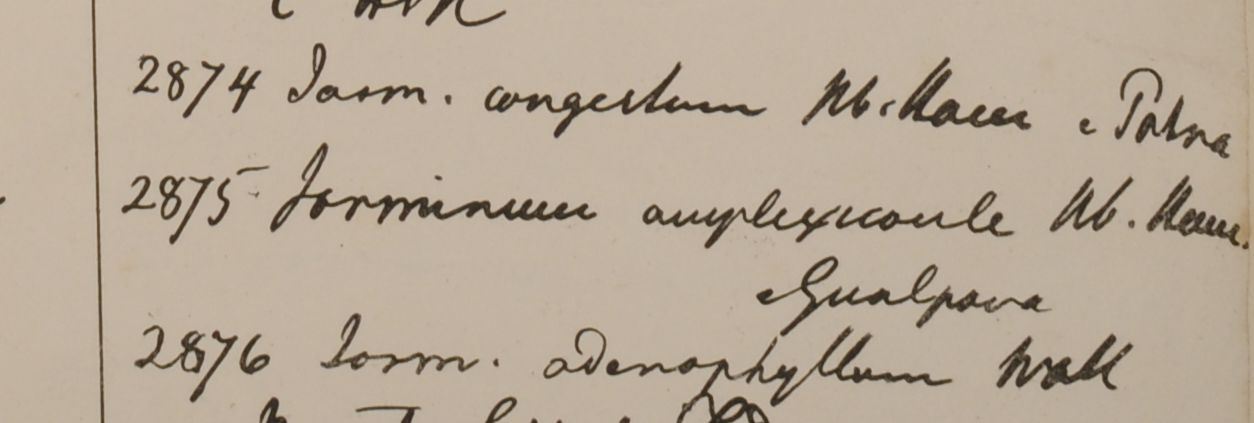 2874 Jasm. congestum Hb. Ham e Patna
2875 Jasminum amplexicaule Hb. Ham.
e Gualpara
2876 Jasm. adenophyllum Wall